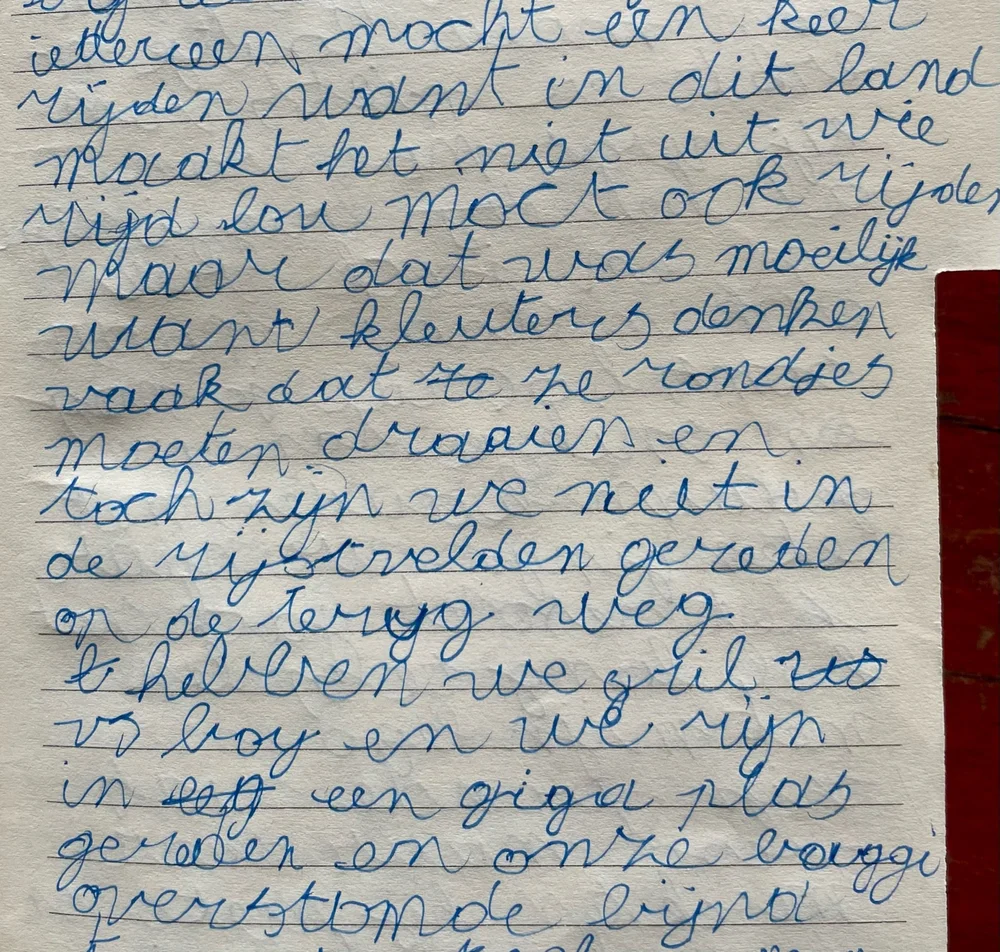 ietereen mocht een keer
rijden want in dit land
maakt het niet uit wie
rijd lou moct ook rijden
maar dat was moeilijk
want kleuters denken
vaak dat ze rondjes
moeten draaien en
toch zijn we niet in
de rijstvelden gereden
op de teruyg weg
hebben we gril
vs boy en we zijn
in een giga plas
gereden en onze bouggi
overstomde bijna